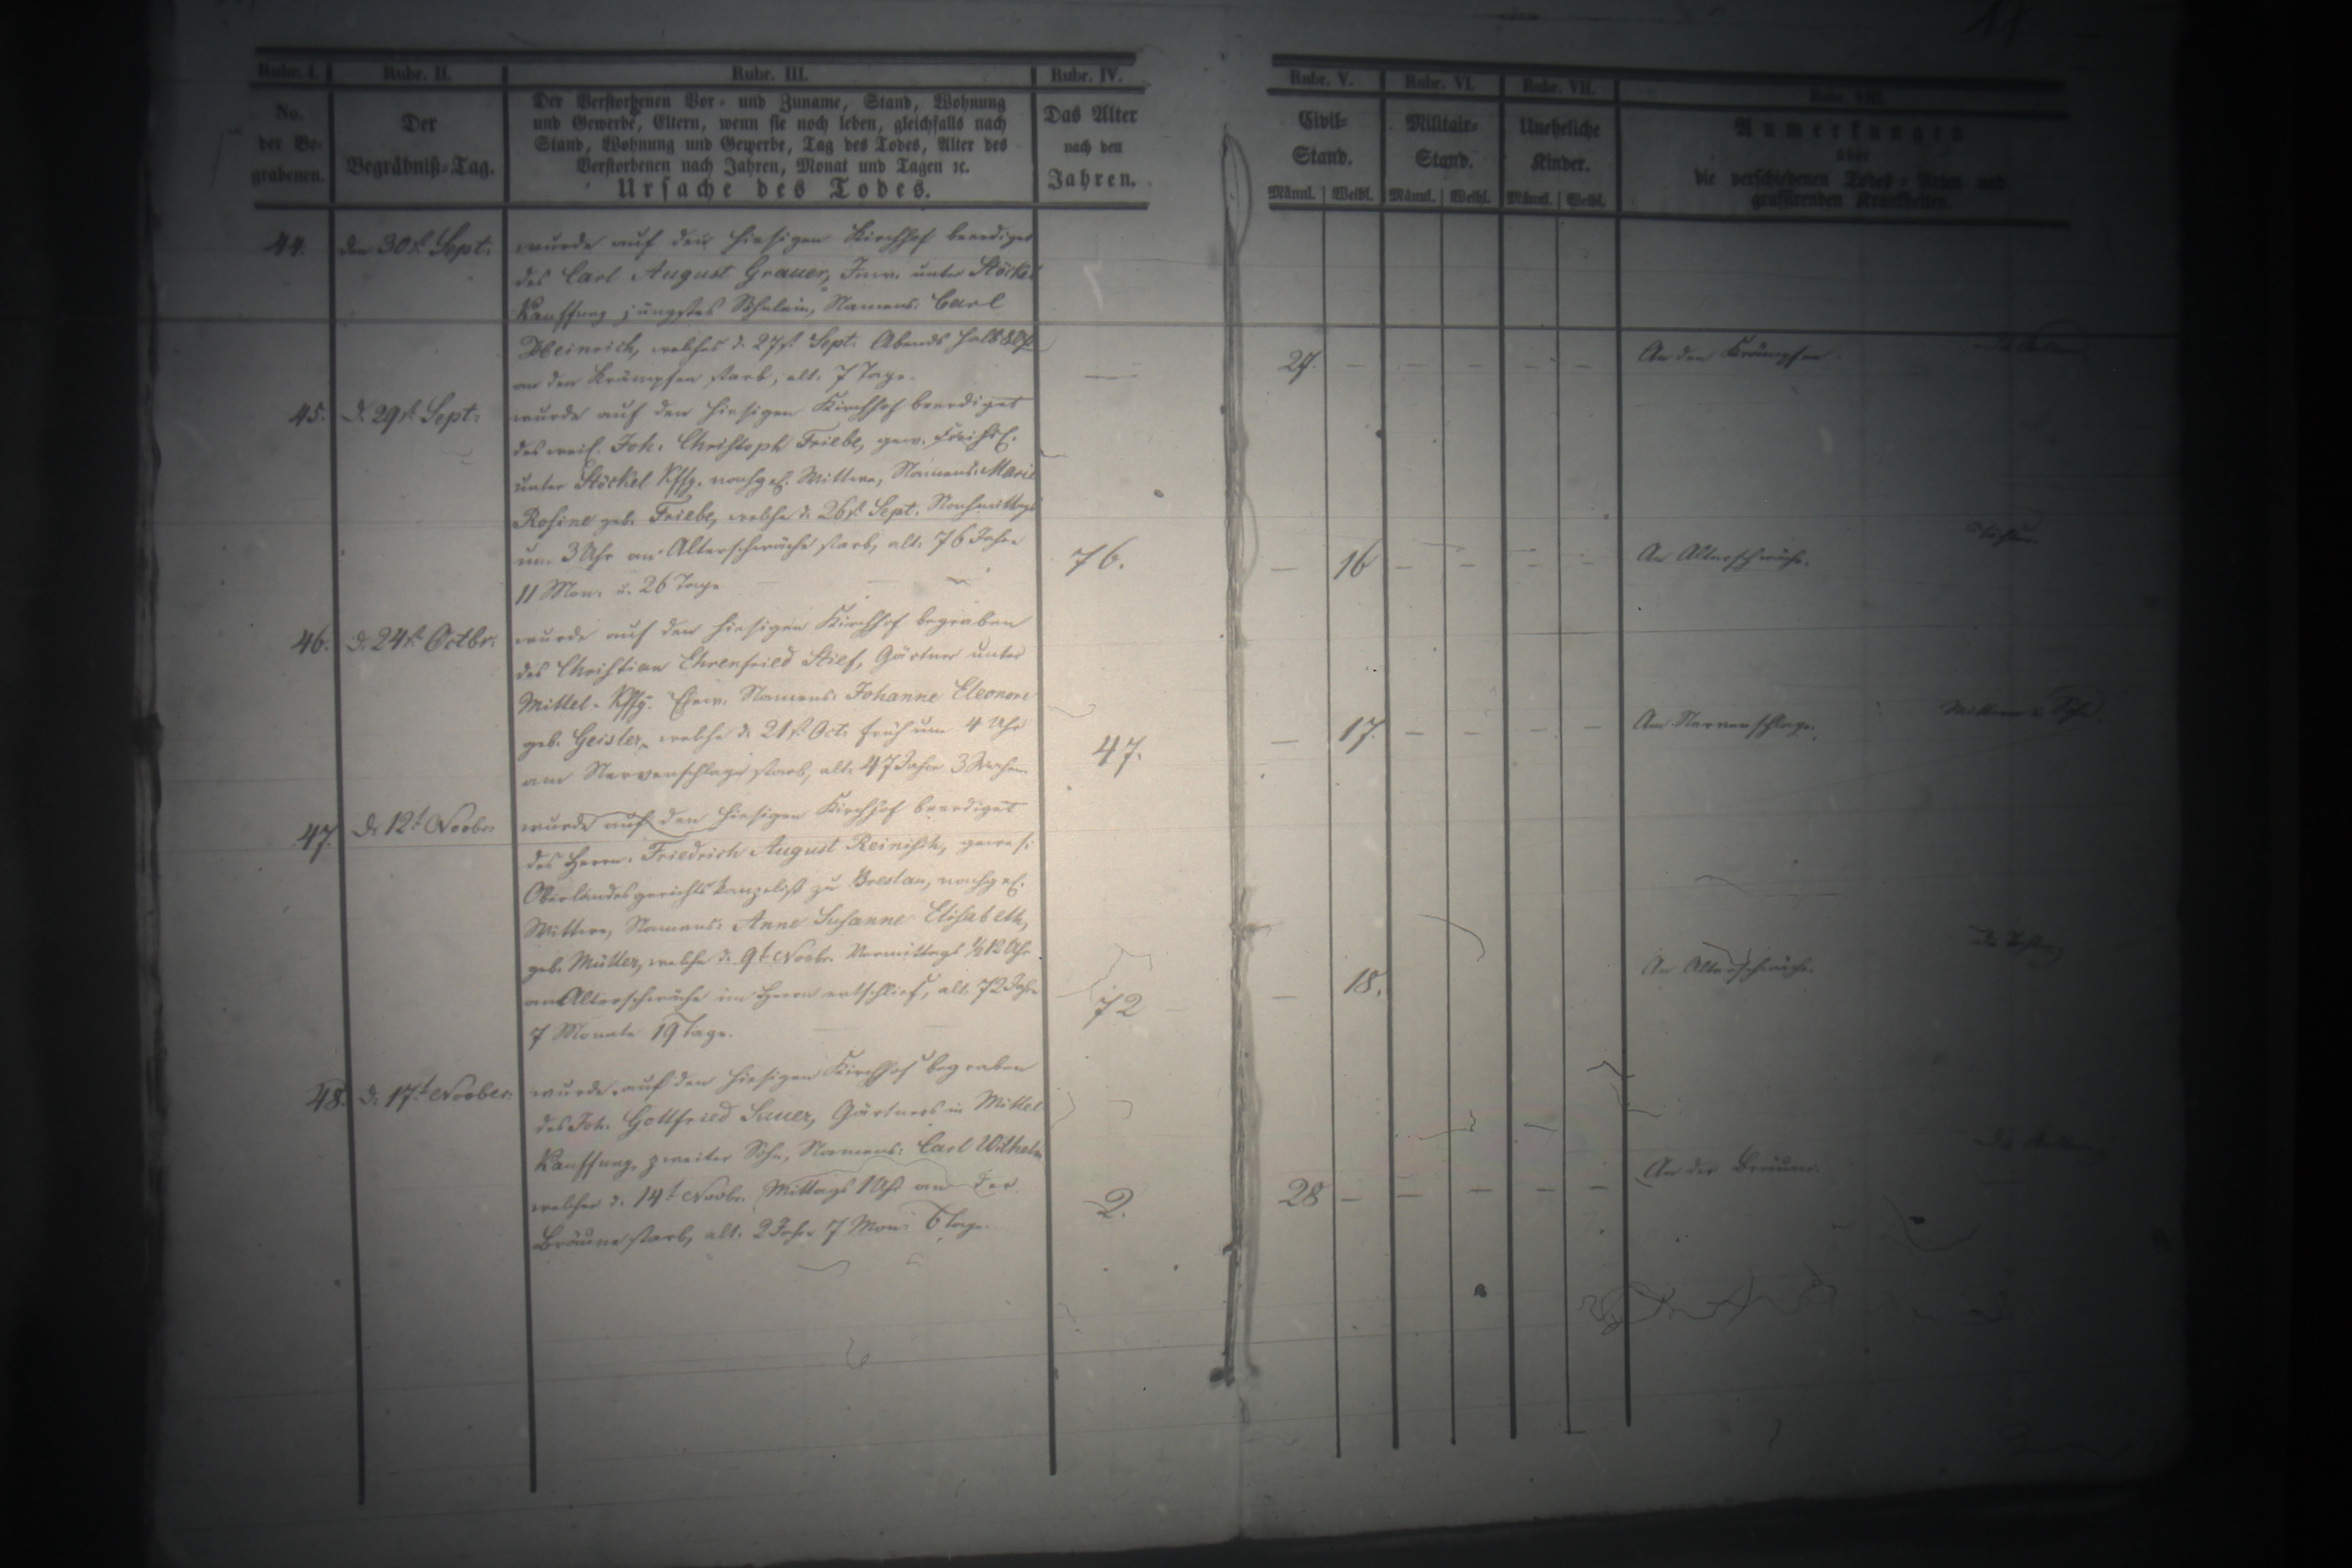 Rubr. I. Rubr. II. Rubr. III. Rubr. IV. Rubr. V. Rubr. VI. Rubr. VII. Rubr. VIII.
No. der Be- grabenen.
Der Begräbniß-Tag.
Der Verstorbenen Vor- und Zuname, Stand, Wohnung
und Gewerbe, Eltern, wenn sie noch leben, gleichfalls nach
Stand, Wohnung und Gewerbe, Tag des Todes, Alter des
Verstorbenen nach Jahren, Monat und Tagen ꝛc.
Ursache des Todes.
Das Alter nach den Jahren.
Civil- Stand. Männl. Weibl.
Militair- Stand. Männl. Weibl.
Uneheliche Kinder. Männl. Weibl.
Anmerkungen
über
die verschiedenen Todes-Arten und
grassirenden Krankheiten.
44. den 30t. Sept. wurde auf den hiesigen Kirchhof beerdiget
des Carl August Grauer, Inw. unter Stöckel
Kauffung jüngstes Söhnlein, Namens: Carl
Heinrich, welches d. 27t. Sept. Abends halb 8 Uhr
an den Krämpfen starb, alt: 7 Tage. — 27. — — — — — An den Krämpfen.
45. d. 29t. Sept. wurde auf den hiesigen Kirchhof beerdiget
des weil. Joh. Christoph Friebe, gew.
unter Stöckel Kffg. nachgel. Wittwe, Namens: Marie
Rosine geb. Friebe, welche d. 26t. Sept. Nachmittags
um 3 Uhr an Alterschwäche starb, alt: 76 Jahre 76. — 16 — — — — An Alterschwäche.
11 Mon. u. 26 Tage
46. d. 24t. Octbr. wurde auf den hiesigen Kirchhof begraben
des Christian Ehrenfried Stief, Gärtner unter
Mittel-Kffg. Ehew. Namens: Johanne Eleonore
geb. Geisler, welche d. 21t. Oct. früh um 4 Uhr
am Nervenschlage starb, alt: 47 Jahre 3 Wochen. 47. — 17. — — — — Am Nervenschlage.
47. d. 12t Novbr. wurde auf den hiesigen Kirchhof beerdiget
des Herrn Friedrich August Reinisch, gewes.
Oberlandesgerichts Kanzelist zu Breslau, nachgel.
Wittwe, Namens: Anne Susanne Elisabeth,
geb. Müller, welche d. 9t Novbr. Vormittags ½12 Uhr
an Alterschwäche im Herrn entschlief, alt: 72 Jahre 72 — 18. An Alterschwäche.
7 Monate 19 Tage.
48. d. 17t Novber. wurde auf den hiesigen Kirchhof begraben
des Joh. Gottfried Sauer, Gärtners in Mittel
Kauffung, zweiter Sohn, Namens: Carl Wilhelm
welcher d. 14t Novbr. Mittags 1 Uhr an der
Bräune starb, alt: 2 Jahr 7 Mon: 6 Tage. 2. 28 — — — — — An der Bräune.